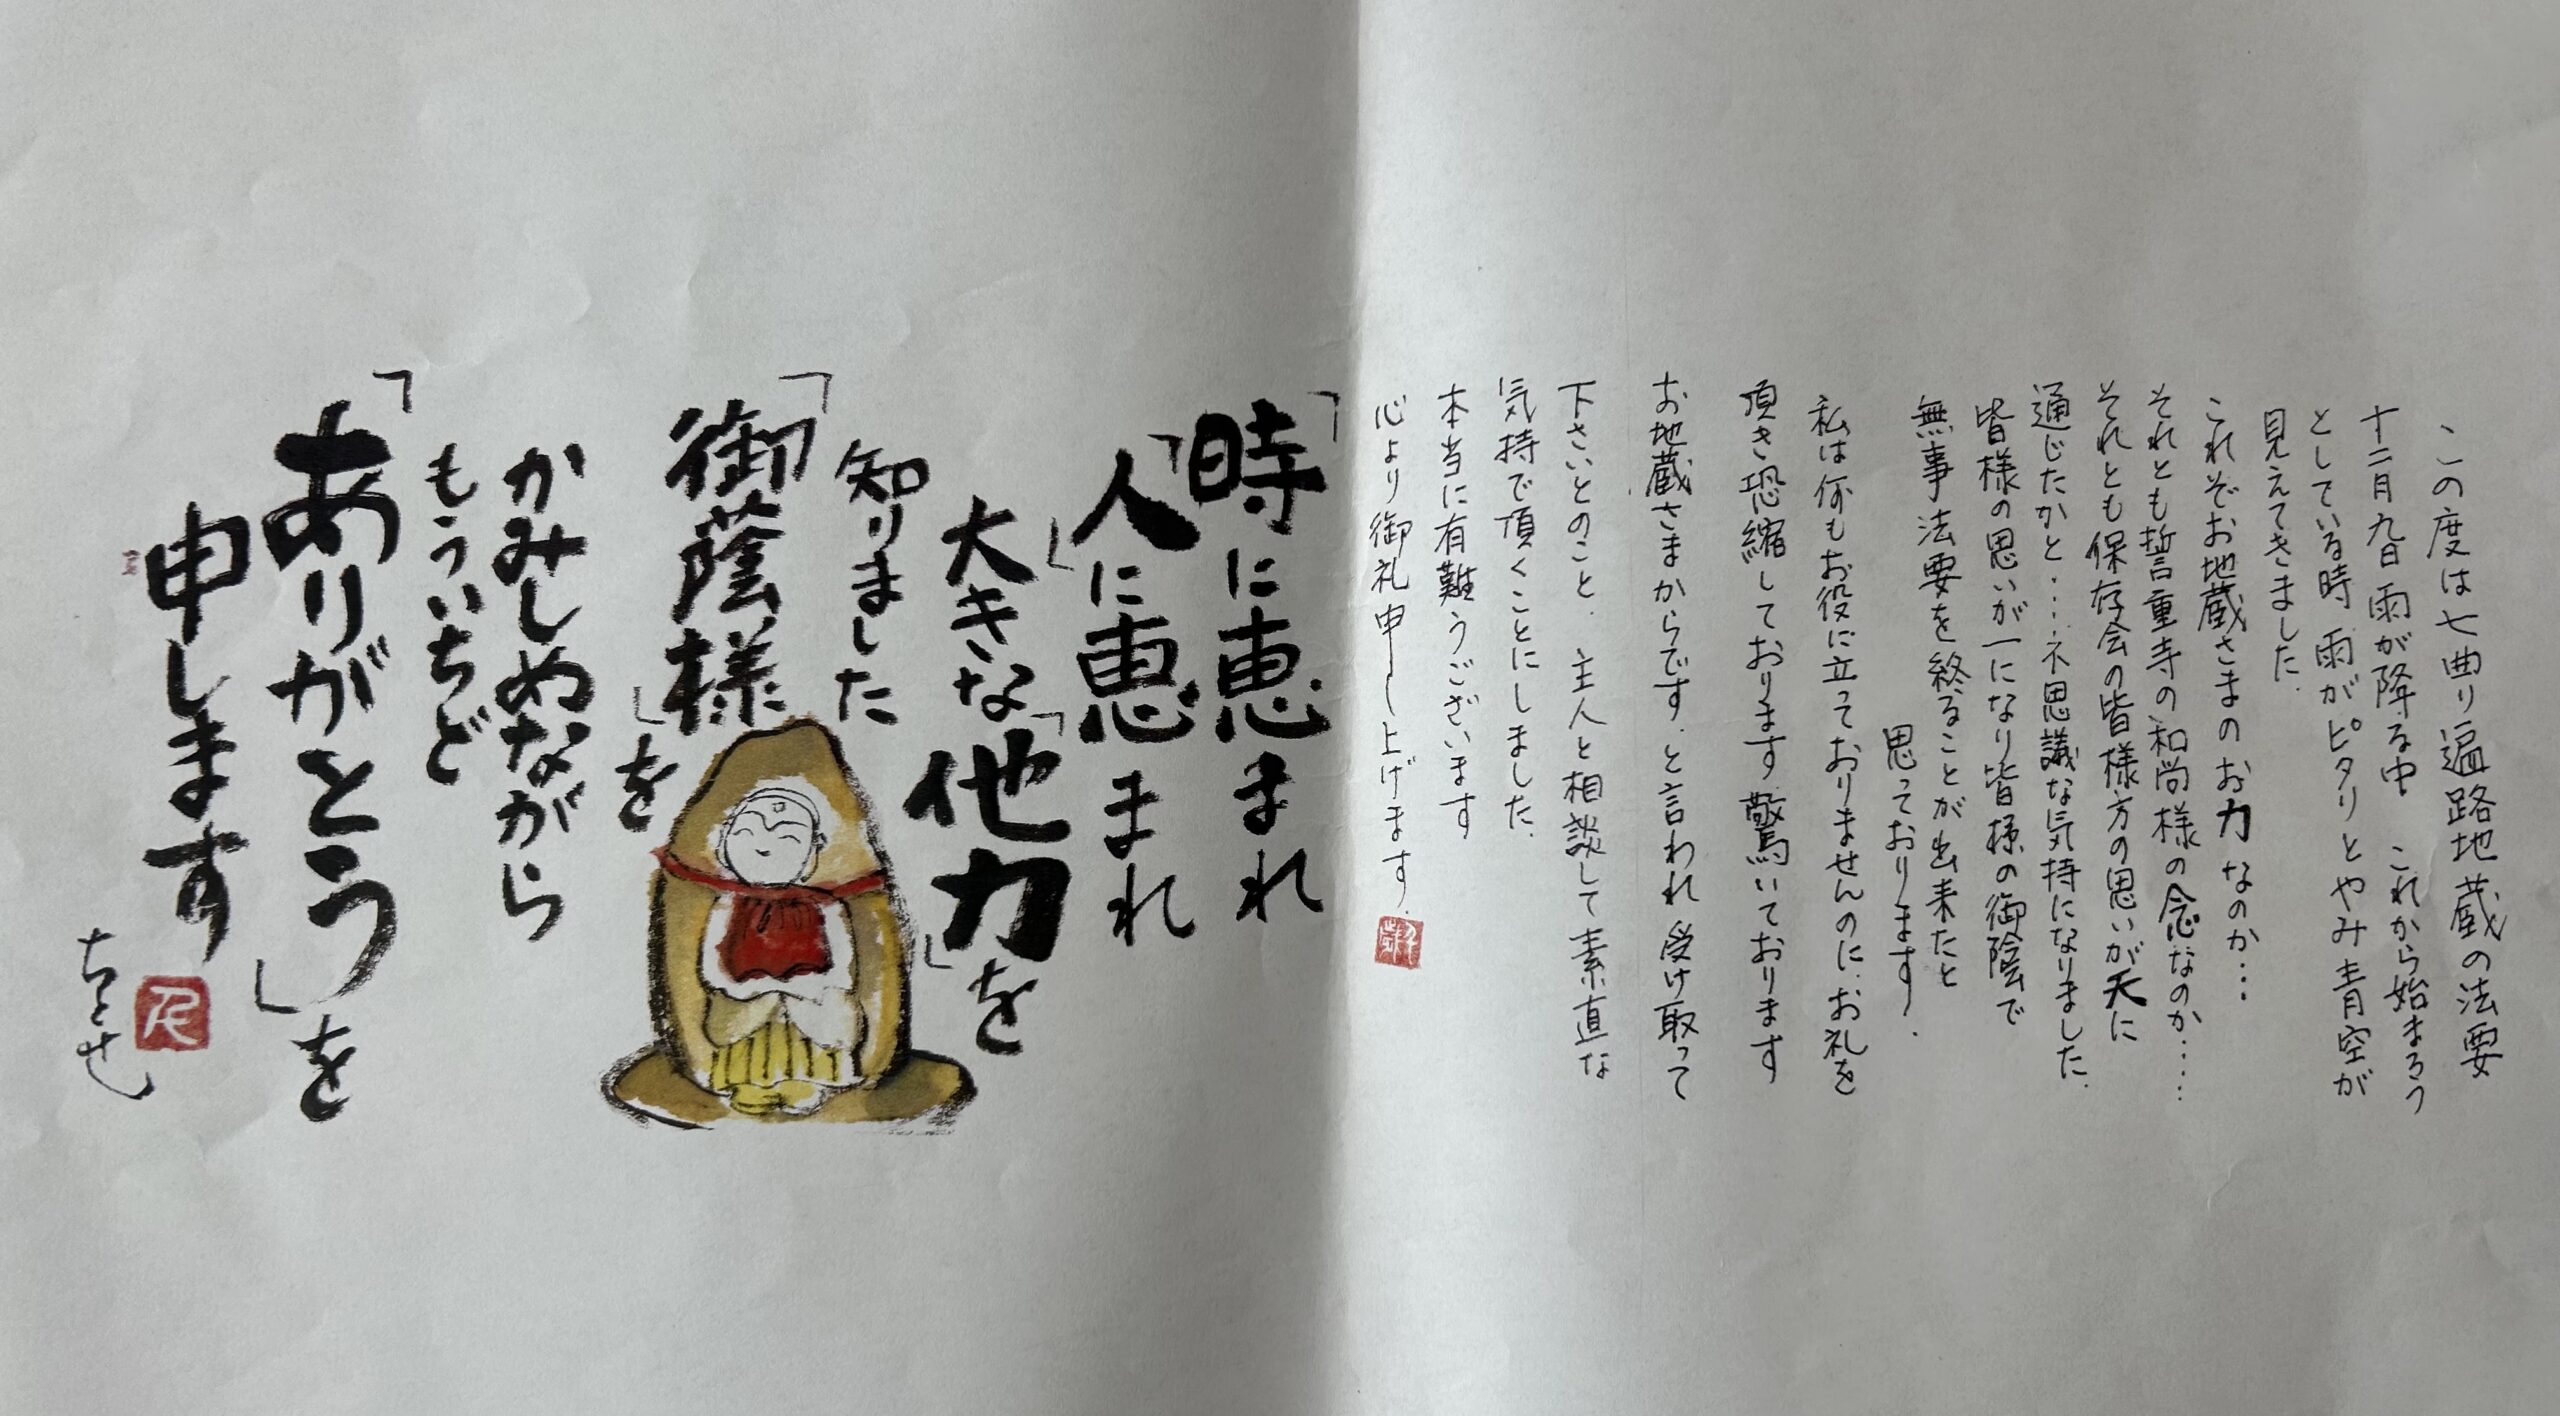 この度は七曲り遍路地蔵の法要
十二月九日雨が降る中 これから始まろう
としている時 雨がピタリとやみ青空が
見えてきました.
これぞお地蔵さまのお力なのか…
それとも誓重寺の和尚様の念なのか.....
それとも保存会の皆様方の思いが天に
通じたかと...不思議な気持になりました.
皆様の思いが一になり皆様の御陰で
無事法要を終ることが出来たと
思っております.
私は何もお役に立っておりませんのに、お礼を
頂き恐縮しております 驚いております
お地蔵さまからです.と言われ 受け取って
下さいとのこと、主人と相談して素直な
気持で頂くことにしました.
本当に有難うございます
心より御礼申し上げます.
「時」に恵まれ
「人」に恵まれ
大きな「他力」を
知りました
「御蔭様」を
かみしめながら
もういちど
「ありがとう」を
申します
ちとせ